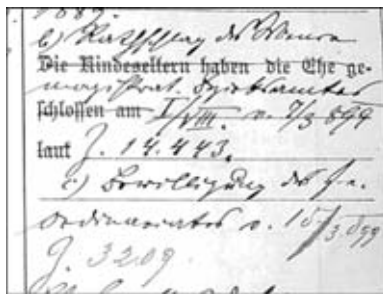 b) Rathschlag des Wiener
Die Kindeseltern haben die Ehe ge-
magistrat. Bezirksamtes
schlossen am I/VIII. v. 7/3 899
laut Z. 14.443.
c) Bewilligung des f. e.
Ordinariates v. 15/3. 899
Z. 3209